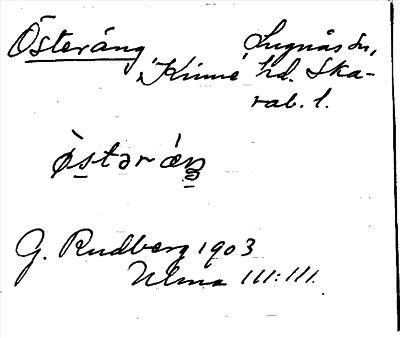 Österäng, Lugnås sn,
Kinne hd. Ska-
rab. l.
ös̲tər æŋ
G. Rudberg 1903
Ulma 111:111.